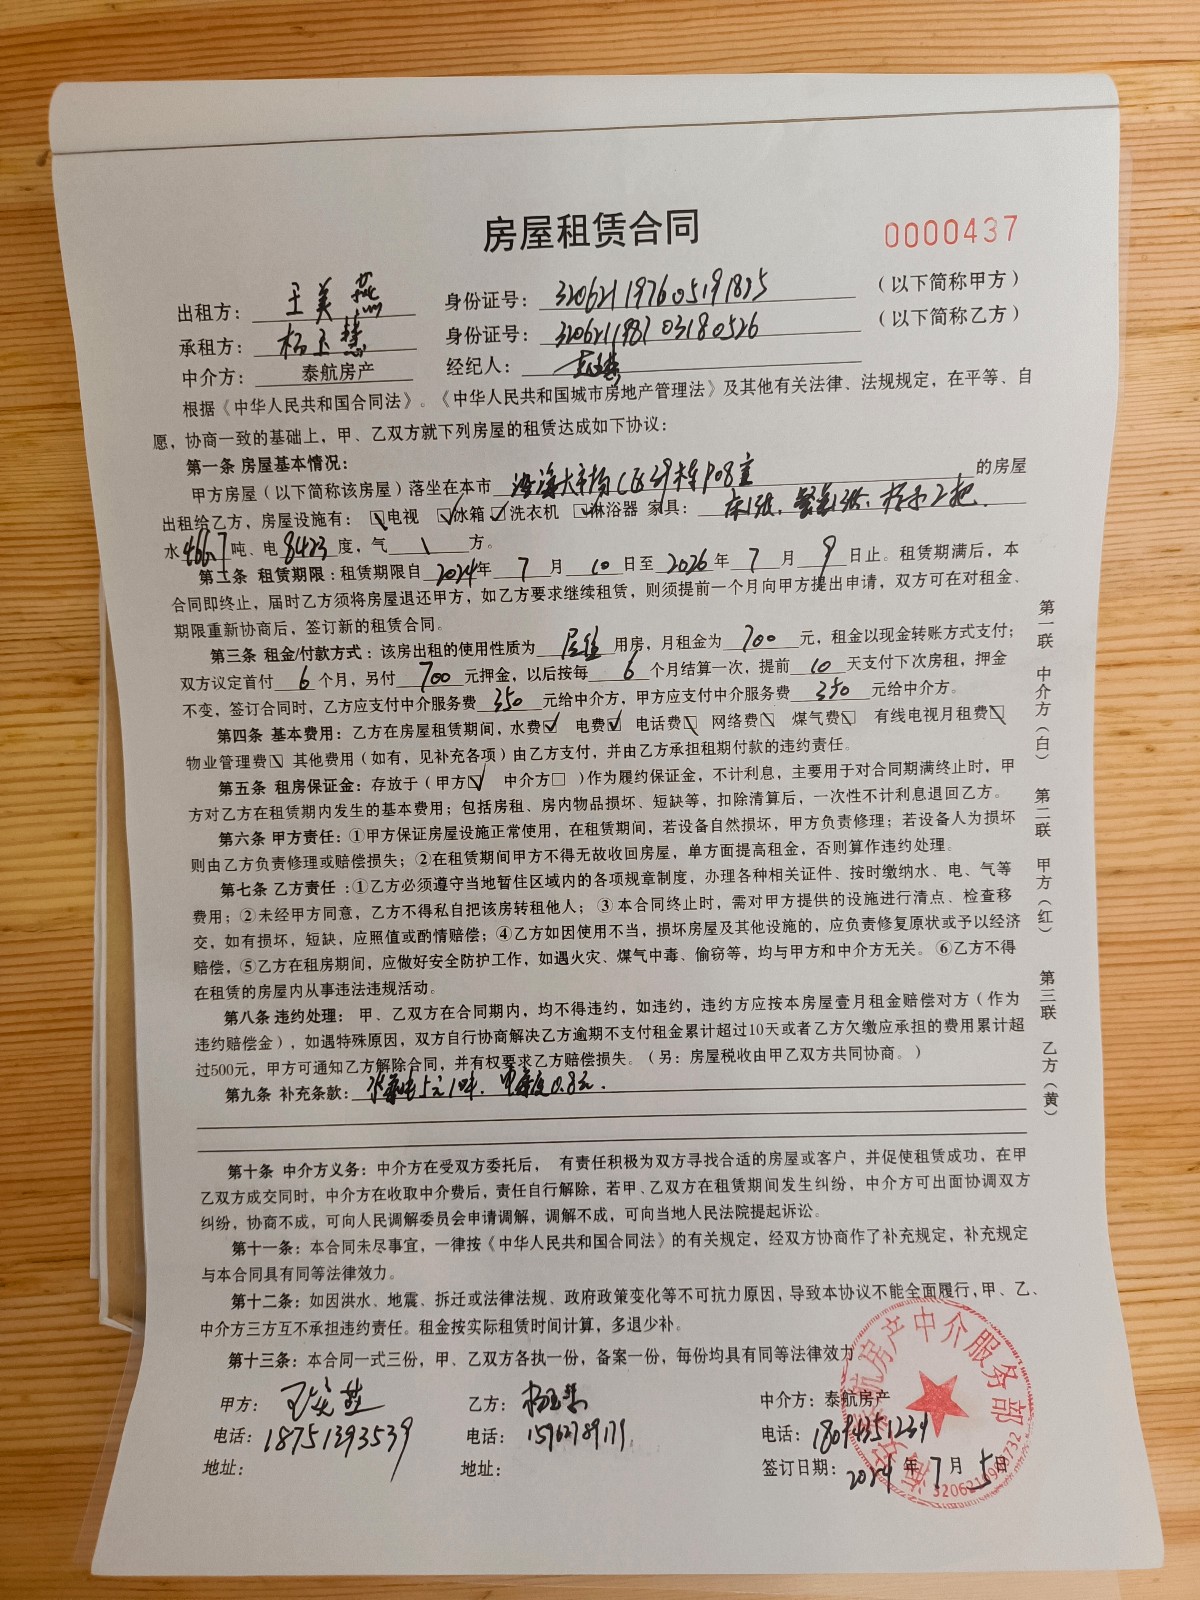 房屋租赁合同
0000437
出租方：王美燕 身份证号：320621197605191825 （以下简称甲方）
承租方：杨玉慧 身份证号：320621198703180526 （以下简称乙方）
中介方：泰航房产 经纪人：
根据《中华人民共和国合同法》。《中华人民共和国城市房地产管理法》及其他有关法律、法规规定，在平等、自
愿，协商一致的基础上，甲、乙双方就下列房屋的租赁达成如下协议：
第一条 房屋基本情况：
甲方房屋（以下简称该房屋）落坐在本市 的房屋
出租给乙方，房屋设施有：☑电视 ☑冰箱 ☑洗衣机 ☑淋浴器 家具：床1张、餐桌1张、椅子2把．
水 吨、电8423度，气 \ 方。
第二条 租赁期限：租赁期限自2024年7月10日至2026年7月9日止。租赁期满后，本
合同即终止，届时乙方须将房屋退还甲方，如乙方要求继续租赁，则须提前一个月向甲方提出申请，双方可在对租金、
期限重新协商后，签订新的租赁合同。
第三条 租金/付款方式：该房出租的使用性质为居住用房，月租金为700元，租金以现金转账方式支付；
双方议定首付6个月，另付700元押金，以后按每6个月结算一次，提前10天支付下次房租，押金
不变，签订合同时，乙方应支付中介服务费350元给中介方，甲方应支付中介服务费350元给中介方。
第四条 基本费用：乙方在房屋租赁期间，水费☑ 电费☑ 电话费☐ 网络费☐ 煤气费☐ 有线电视月租费☐
物业管理费☐ 其他费用（如有，见补充各项）由乙方支付，并由乙方承担租期付款的违约责任。
第五条 租房保证金：存放于（甲方☑ 中介方☐ ）作为履约保证金，不计利息，主要用于对合同期满终止时，甲
方对乙方在租赁期内发生的基本费用；包括房租、房内物品损坏、短缺等，扣除清算后，一次性不计利息退回乙方。
第六条 甲方责任：①甲方保证房屋设施正常使用，在租赁期间，若设备自然损坏，甲方负责修理；若设备人为损坏
则由乙方负责修理或赔偿损失；②在租赁期间甲方不得无故收回房屋，单方面提高租金，否则算作违约处理。
第七条 乙方责任：①乙方必须遵守当地暂住区域内的各项规章制度，办理各种相关证件、按时缴纳水、电、气等
费用；②未经甲方同意，乙方不得私自把该房转租他人；③本合同终止时，需对甲方提供的设施进行清点、检查移
交，如有损坏，短缺，应照值或酌情赔偿；④乙方如因使用不当，损坏房屋及其他设施的，应负责修复原状或予以经济
赔偿，⑤乙方在租房期间，应做好安全防护工作，如遇火灾、煤气中毒、偷窃等，均与甲方和中介方无关。⑥乙方不得
在租赁的房屋内从事违法违规活动。
第八条 违约处理：甲、乙双方在合同期内，均不得违约，如违约，违约方应按本房屋壹月租金赔偿对方（作为
违约赔偿金），如遇特殊原因，双方自行协商解决乙方逾期不支付租金累计超过10天或者乙方欠缴应承担的费用累计超
过500元，甲方可通知乙方解除合同，并有权要求乙方赔偿损失。（另：房屋税收由甲乙双方共同协商。）
第九条 补充条款：
第十条 中介方义务：中介方在受双方委托后， 有责任积极为双方寻找合适的房屋或客户，并促使租赁成功，在甲
乙双方成交同时，中介方在收取中介费后，责任自行解除，若甲、乙双方在租赁期间发生纠纷，中介方可出面协调双方
纠纷，协商不成，可向人民调解委员会申请调解，调解不成，可向当地人民法院提起诉讼。
第十一条：本合同未尽事宜，一律按《中华人民共和国合同法》的有关规定，经双方协商作了补充规定，补充规定
与本合同具有同等法律效力。
第十二条：如因洪水、地震、拆迁或法律法规、政府政策变化等不可抗力原因，导致本协议不能全面履行，甲、乙、
中介方三方互不承担违约责任。租金按实际租赁时间计算，多退少补。
第十三条：本合同一式三份，甲、乙双方各执一份，备案一份，每份均具有同等法律效力
甲方：王美燕 乙方：杨玉慧 中介方：泰航房产
电话：18751393539 电话：15962789179 电话：
地址： 地址： 签订日期：2024年7月5日
第一联 中介方（白） 第二联 甲方（红） 第三联 乙方（黄）
航房产中介服务部